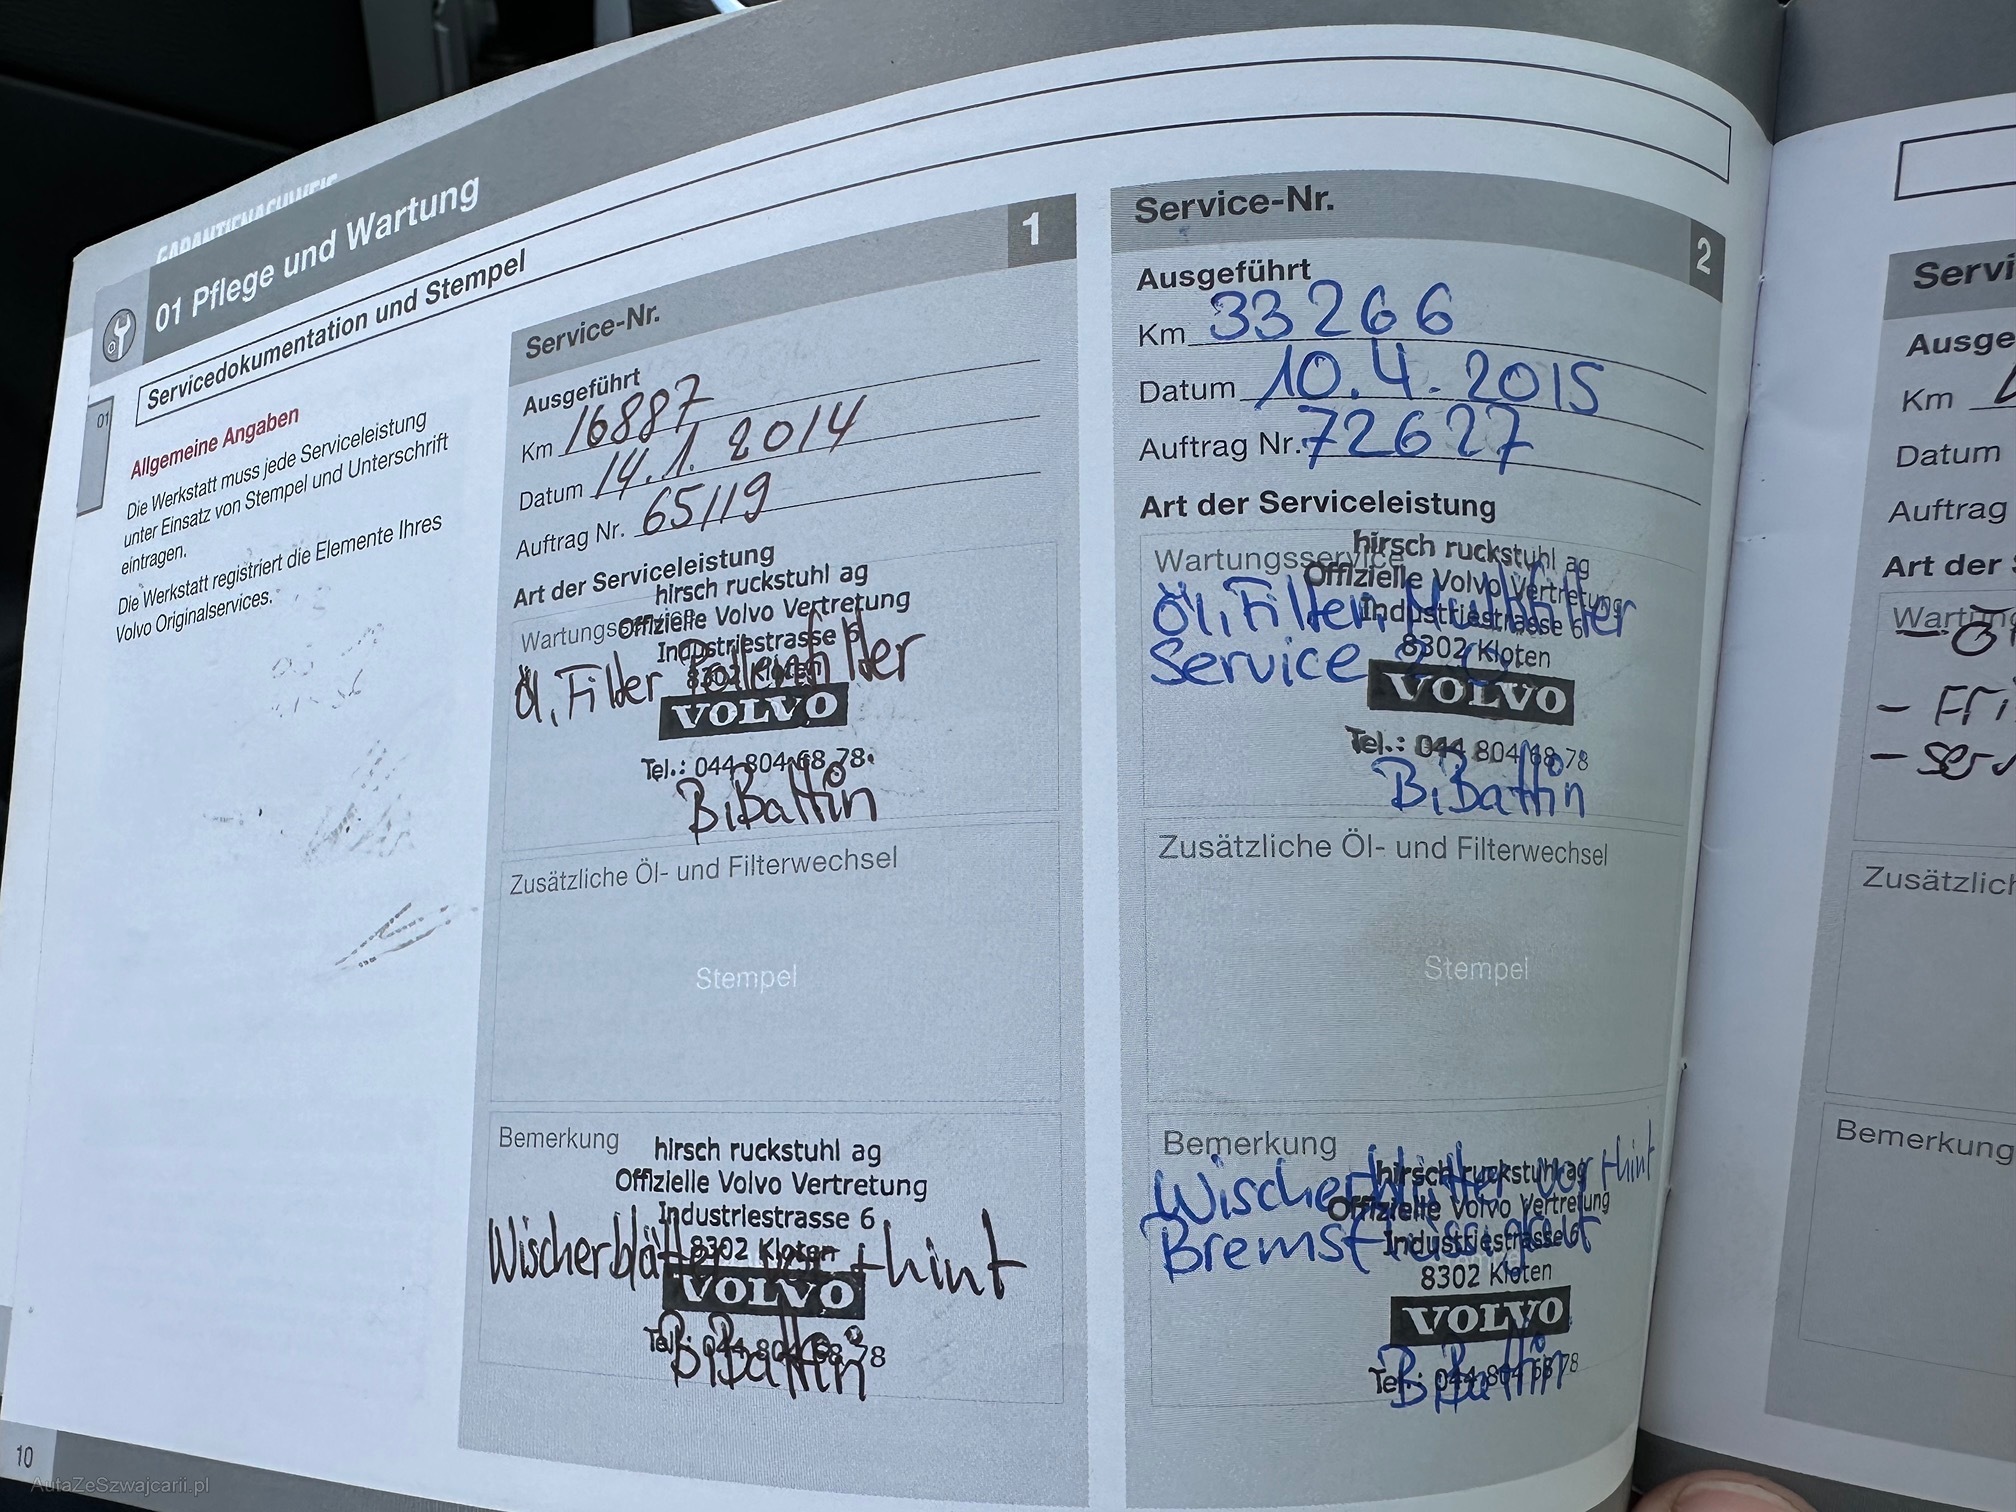 GARANTIENACHWEIS
01 Pflege und Wartung
Servicedokumentation und Stempel
01
Allgemeine Angaben
Die Werkstatt muss jede Serviceleistung
unter Einsatz von Stempel und Unterschrift
eintragen.
Die Werkstatt registriert die Elemente Ihres
Volvo Originalservices.
Service-Nr. 1
Ausgeführt
Km 16887
Datum 14.1.2014
Auftrag Nr. 65119
Art der Serviceleistung
hirsch ruckstuhl ag
Offizielle Volvo Vertretung
Wartungsservice
Industriestrasse 6
8302 Kloten
Öl, Filter Pollenfilter
VOLVO
Tel.: 044 804 68 78
BiBattin
Zusätzliche Öl- und Filterwechsel
Stempel
Bemerkung
hirsch ruckstuhl ag
Offizielle Volvo Vertretung
Industriestrasse 6
8302 Kloten
Wischerblätter vor + hint
VOLVO
Tel.: 044 804 68 78
BiBattin
Service-Nr. 2
Ausgeführt
Km 33266
Datum 10.4.2015
Auftrag Nr. 72627
Art der Serviceleistung
Wartungsservice
hirsch ruckstuhl ag
Offizielle Volvo Vertretung
Industriestrasse 6
8302 Kloten
Öl, Filter,
Service
VOLVO
Tel.: 044 804 68 78
BiBattin
Zusätzliche Öl- und Filterwechsel
Stempel
Bemerkung
hirsch ruckstuhl ag
Offizielle Volvo Vertretung
Industriestrasse 6
8302 Kloten
Wischerblätter vor + hint
Bremsflüssigkeit
VOLVO
Tel.: 044 804 68 78
BiBattin
Servi
Ausge
Km
Datum
Auftrag
Art der S
Wartung
- Ö
- Fri
- Ser
Zusätzlich
Bemerkung
10
AutaZeSzwajcarii.pl